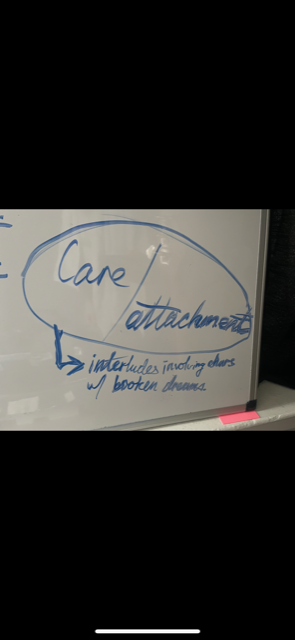 Care /
attachment
interludes involving chars
w/ broken dreams